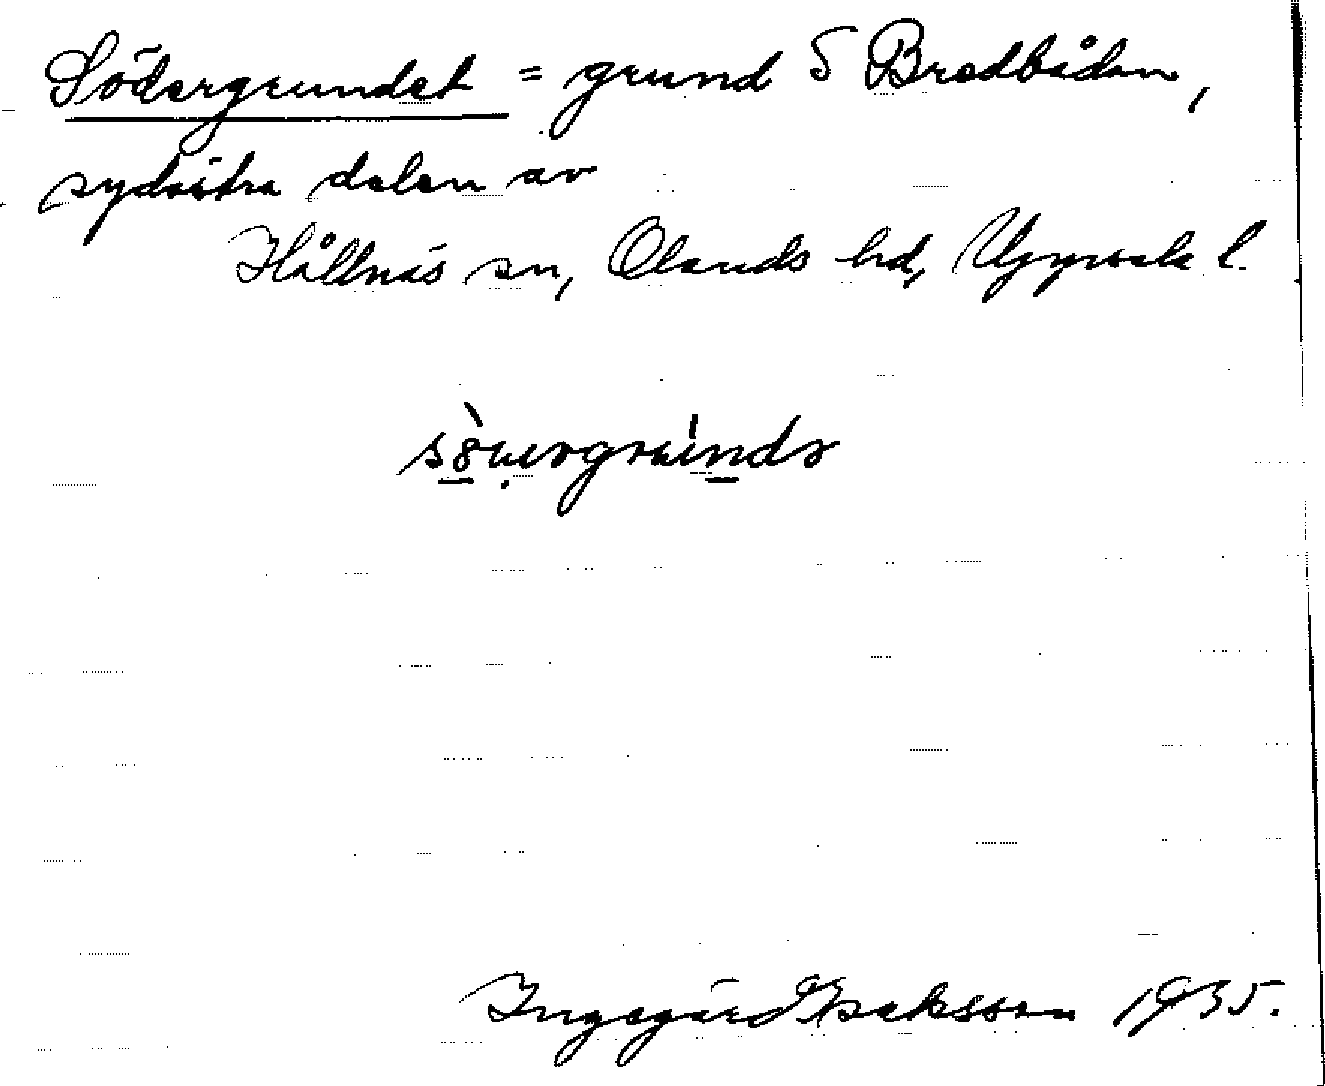 Södergrundet = grund S Bredbådan,
sydöstra delen av
Hållnäs sn, Olands hd, Uppsala l.
Ingegärd Isaksson 1935.